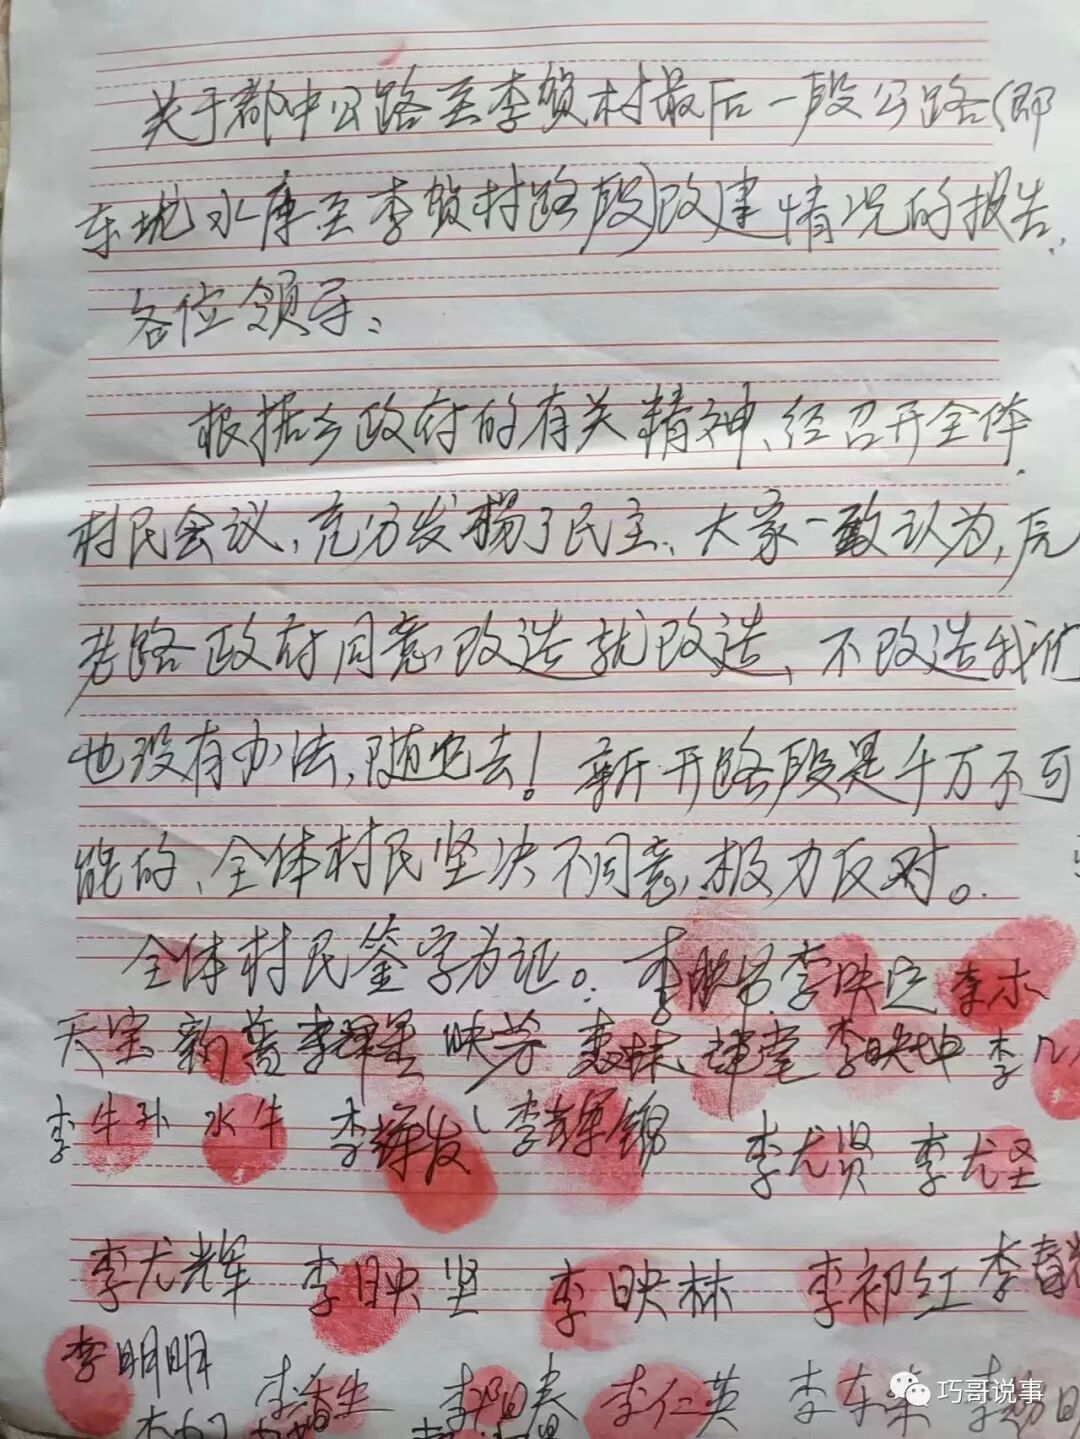 关于都中公路至李贺村最后一段公路(即
东坑水库至李贺村路段)改建情况的报告.
各位领导:
根据乡政府的有关精神、经召开全体
村民会议,充分发扬了民主、大家一致认为,原
老路政府同意改造就改造、不改造我们
也没有办法,随它去!新开路段是千万不可
能的、全体村民坚决不同意,极力反对。
全体村民签字为证。李映吊 李映定 李木
天宝 李辉星 映芳 李映坤 李
李牛孙 水牛 李辉发 李辉锦 李尤贤 李尤圣
李尤辉 李映坚 李映林 李初红 李春
李明明
李香生 李阳春 李仁英 李东
巧哥说事